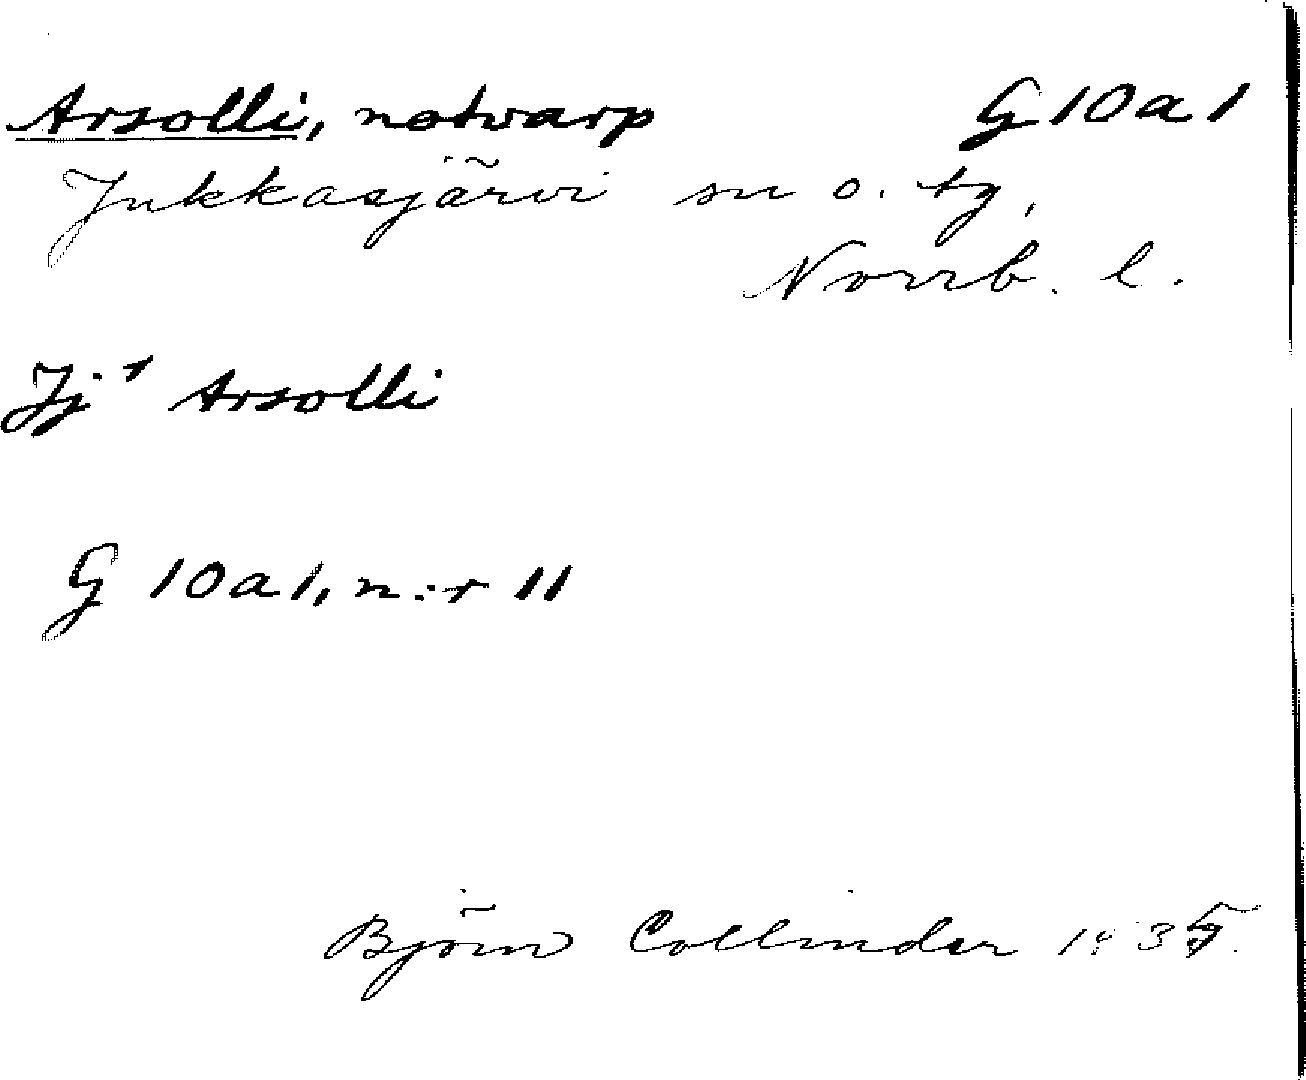 Arsolli, notvarp G 10 a 1
Jukkasjärvi sn o. tg,
Norrb. l.
Jj¹ Arsolli
G 10 a 1, n:r 11
Björn Collinder